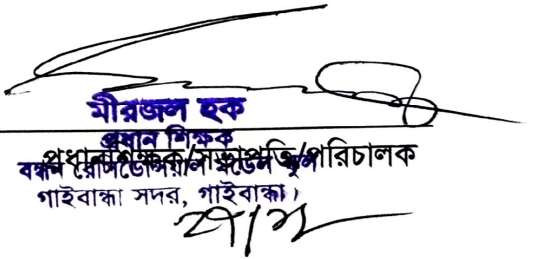 মীরজল হক
প্রধান শিক্ষক
প্রধান শিক্ষক/সভাপতি/পরিচালক
বন্ধন রেসিডেন্সিয়াল মডেল স্কুল
গাইবান্ধা সদর, গাইবান্ধা।